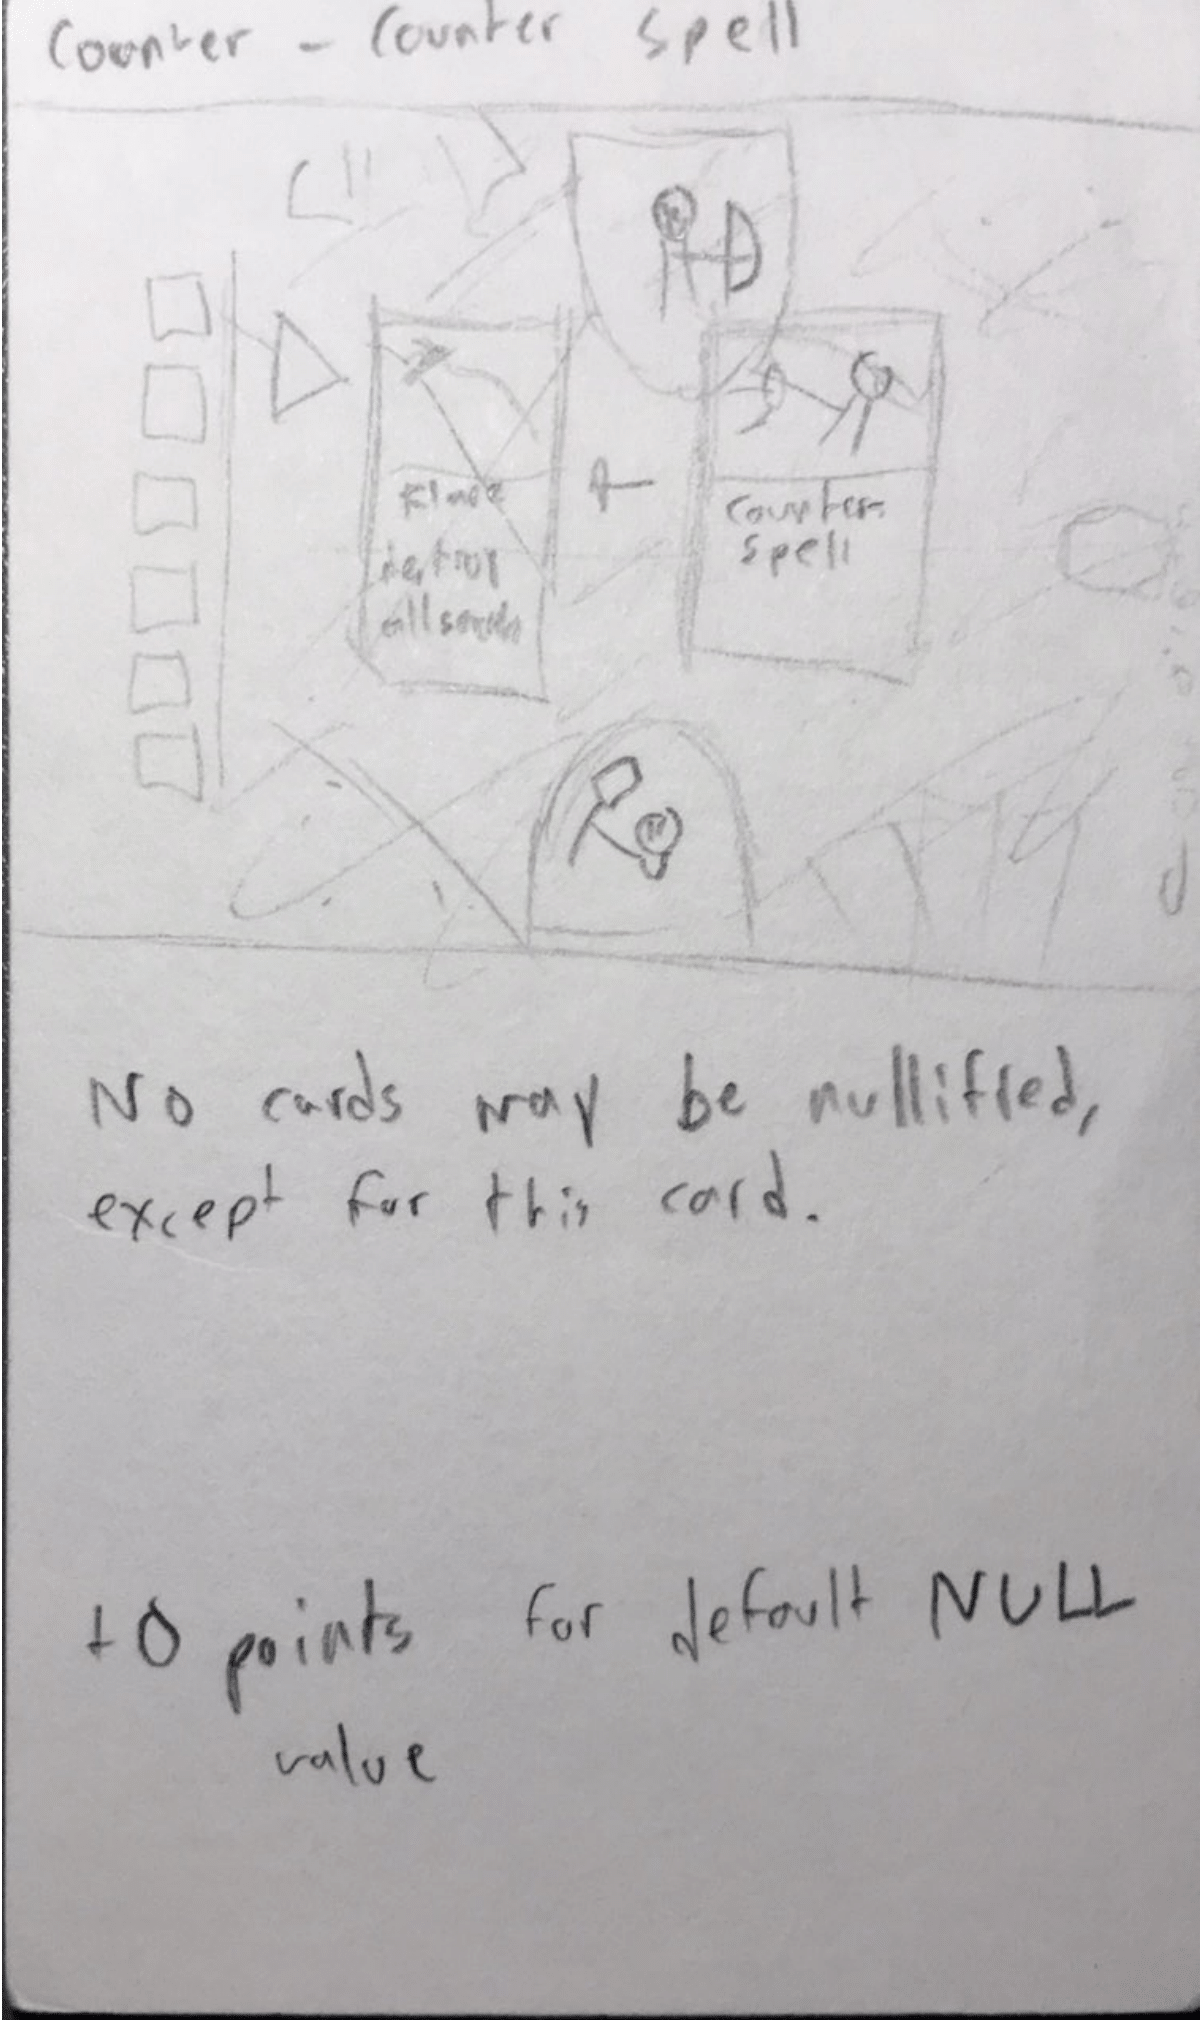 Counter - Counter spell
destroy
all
Counter-
spell
No cards may be nullified,
except for this card.
+0 points for default NULL
value